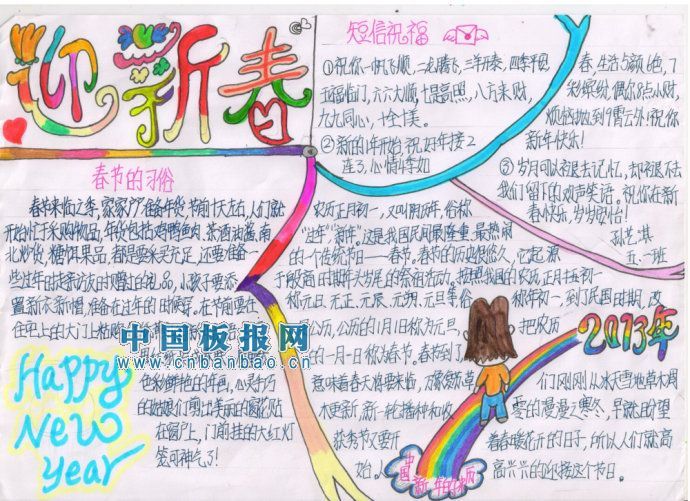 迎新春
短信祝福
①祝你一帆风顺，二龙腾飞，三羊开泰，四季平安
五福临门，六六大顺，七星高照，八方来财，
九九同心，十全十美。
②新的1年开始，祝好年接2
连3，心情4季如
春，生活5颜6色，7
彩缤纷，偶尔8点小财，
烦恼抛到9霄云外！祝你
新年快乐！
③岁月可以褪去记忆，却褪不去
我们留下的欢声笑语。祝你在新
春快乐，岁岁安怡！
五、一班
春节的习俗
春节来临之季，家家户户准备年货，节前十天左右，人们就
开始忙于采购物品，年货包括鸡鸭鱼肉、茶酒油酱、南
北炒货、糖饵果品，都要采买充足，还要准备一
些过年时走亲访友时赠送的礼品，小孩子要添
置新衣新帽，准备在过年的时候穿。在节前要在
住宅上的大门上粘贴
色彩鲜艳的年画，心灵手巧
的姑娘们剪出美丽的窗花贴
在窗户上，门前挂的大红灯
农历正月初一，又叫阴历年，俗称
"过年""新年"。这是我国民间最隆重、最热闹
的一个传统节日——春节。春节的历史很悠久，它起源
于殷商时期年头岁尾的祭祖活动。按照我国的农历，正月初一
称元旦、元正、元辰、元朔、元旦等俗
称年初一，到了民国时期，改
公历，公历的1月1日称为元旦，
把农历
的一月一日称为春节。春节到了，
意味着春天将要来临，万象复苏草
木更新，新一轮播种和收
获季节又要开
始。
们刚刚从冰天雪地草木凋
零的漫漫寒冬，早就盼望
着春暖花开的日子，所以人们就高
高兴兴的迎接这个节日。
2013年
Happy
New
year
中国板报网
www.cnbanbao.cn